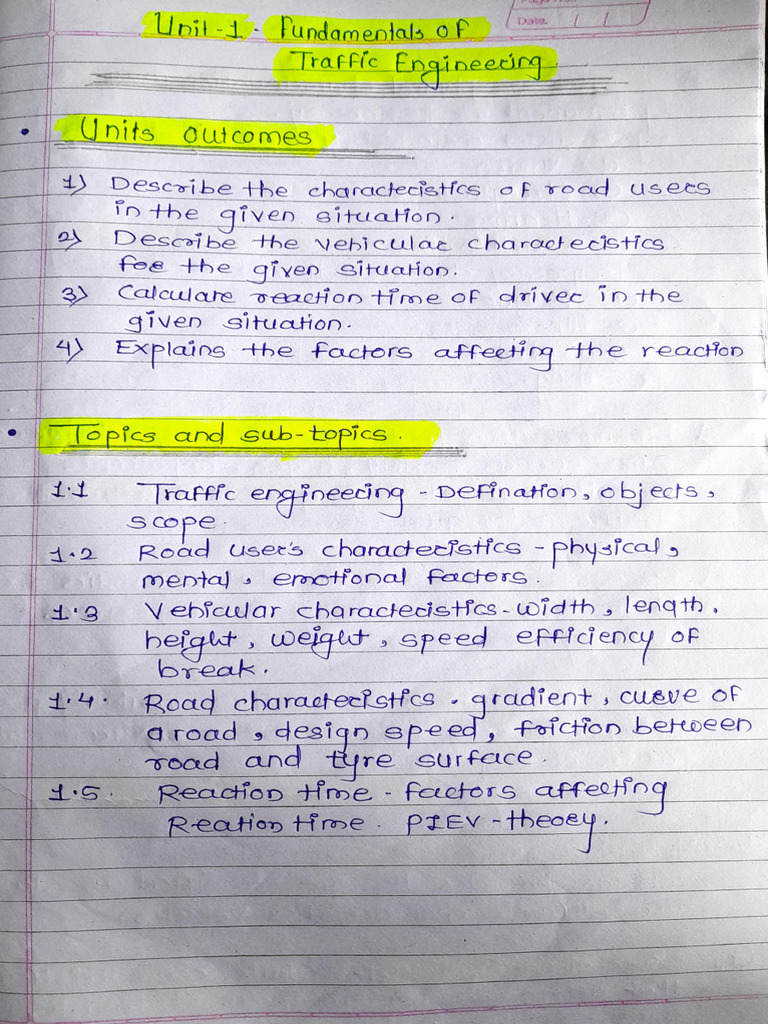 Unit-1. Fundamentals of
Traffic Engineering
Date. / /
• Units outcomes
1) Describe the characteristics of road users
in the given situation.
2) Describe the vehicular characteristics
for the given situation.
3) Calculate reaction time of driver in the
given situation.
4) Explains the factors affecting the reaction
• Topics and sub-topics.
1.1 Traffic engineering - Defination, objects,
scope.
1.2 Road user's characteristics - physical,
mental, emotional factors.
1.3 Vehicular characteristics - width, length,
height, weight, speed efficiency of
break.
1.4. Road characteristics. gradient, curve of
a road, design speed, friction between
road and tyre surface.
1.5. Reaction time - factors affecting
Reation time. PIEV - theory.